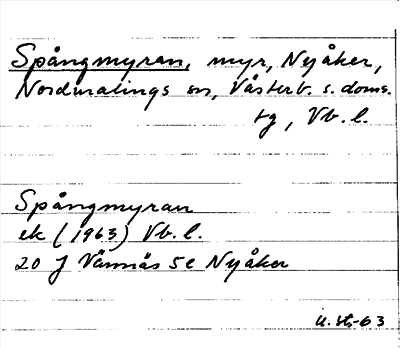 Spångmyran, myr, Nyåker,
Nordmalings sn, Västerb. s. doms.
tg, Vb. l.
Spångmyran
ek (1963) Vb. l.
20 J Vännäs 5e Nyåker
-63